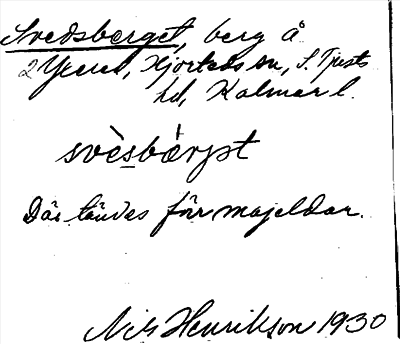 Svedsberget, berg å
Hjorteds sn, S. Tjusts
hd, Kalmar l.
svèsbærjet
Där tändes förr majeldar.
Nils Henrikson 1930